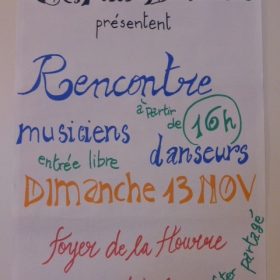 présentent
Rencontre
à partir
de 16h
musiciens
entrée libre
danseurs
Dimanche 13 NOV
Foyer de la Hourre
partagé